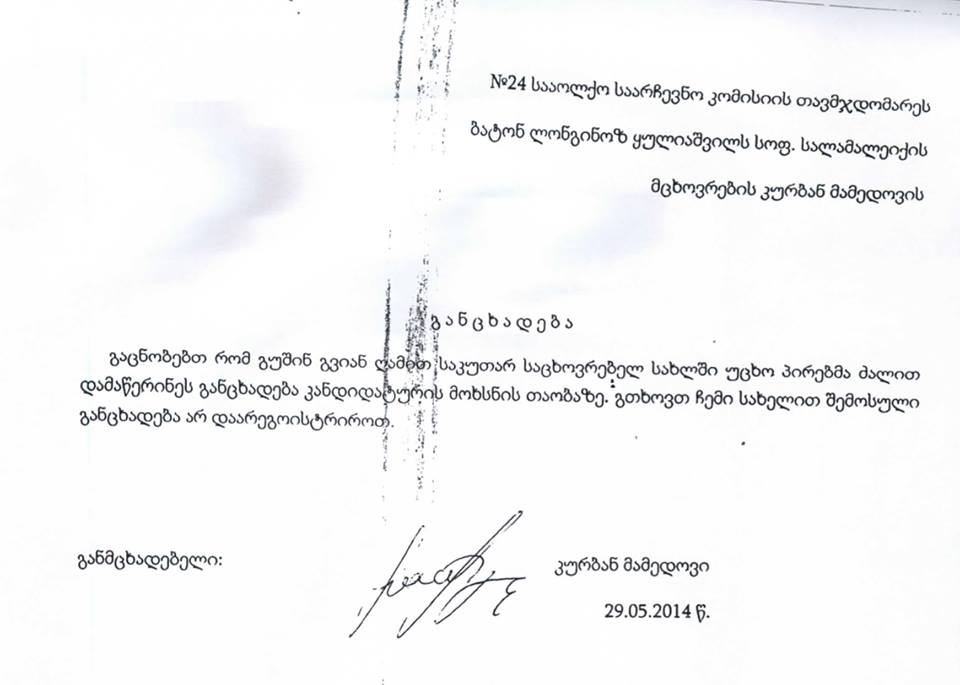 №24 სააოლქო საარჩევნო კომისიის თავმჯდომარეს
ბატონ ლონგინოზ ყულიაშვილს სოფ. სალამალეიქის
მცხოვრების კურბან მამედოვის
გ ა ნ ც ხ ა დ ე ბ ა
გაცნობებთ რომ გუშინ გვიან ღამით საკუთარ საცხოვრებელ სახლში უცხო პირებმა ძალით
დამაწერინეს განცხადება კანდიდატურის მოხსნის თაობაზე. გთხოვთ ჩემი სახელით შემოსული
განცხადება არ დაარეგოისტრიროთ.
განმცხადებელი:
კურბან მამედოვი
29.05.2014 წ.